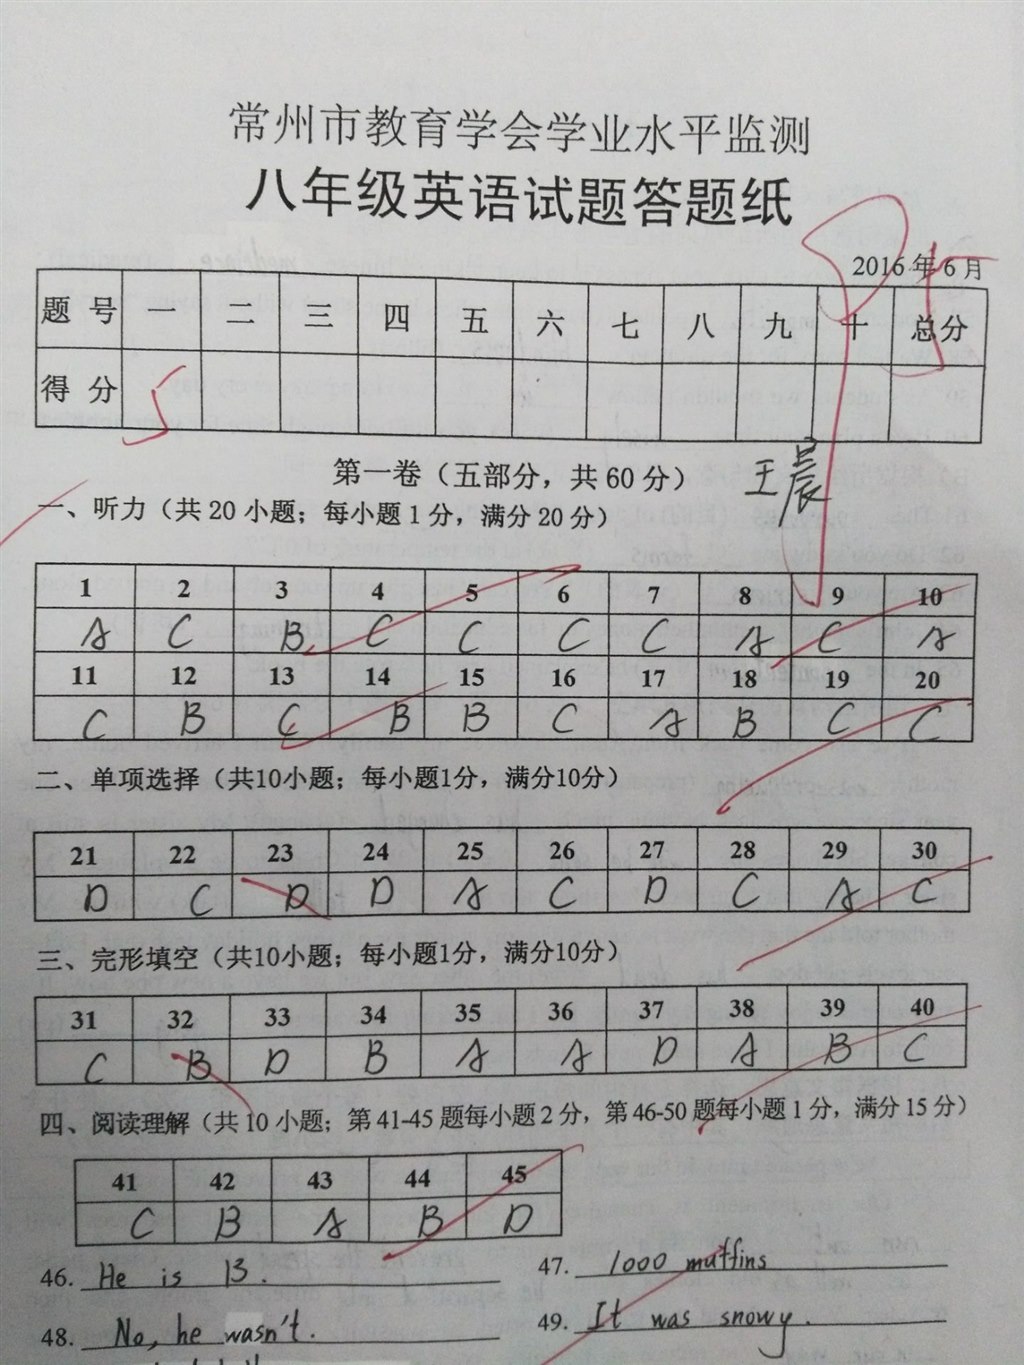 常州市教育学会学业水平监测
八年级英语试题答题纸
2016年6月
题号 一 二 三 四 五 六 七 八 九 十 总分
得分 5
第一卷（五部分，共60分）
王晨
一、听力（共20小题；每小题1分，满分20分）
1 2 3 4 5 6 7 8 9 10
A C B C C C C A C A
11 12 13 14 15 16 17 18 19 20
C B C B B C A B C C
二、单项选择（共10小题；每小题1分，满分10分）
21 22 23 24 25 26 27 28 29 30
D C D D A C D C A C
三、完形填空（共10小题；每小题1分，满分10分）
31 32 33 34 35 36 37 38 39 40
C B D B A A D A B C
四、阅读理解（共10小题；第41-45题每小题2分，第46-50题每小题1分，满分15分）
41 42 43 44 45
C B A B D
46. He is 13. 47. 1000 muffins
48. No, he wasn't. 49. It was snowy.